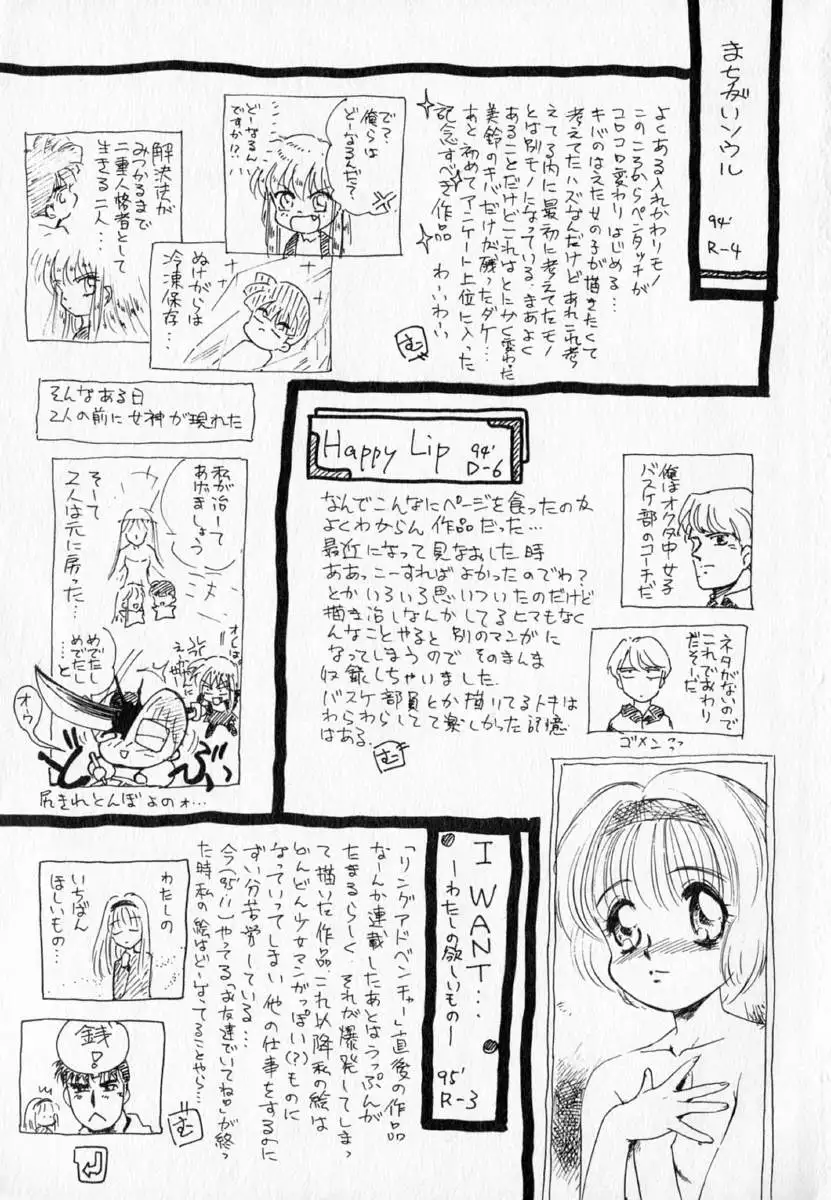 まちがいソウル
94'
R-4
よくある入れかわりモノ
このころからペンタッチが
コロコロ変わりはじめる…
キバのはえた女の子が描きたくて
考えてたハズなんだけどあれこれ考
えてる内に最初に考えてたモノ
とは別モノになっている、まあよく
あることだけどこれはとにかく変わった
美鈴のキバだけが残ったダケ…
あと初めてアンケート上位に入った
記念すべき作品 わーいわーい
む
で?
俺らは
どーなるんだ?
どーなるん
ですか!?
ぬけがらは
冷凍保存…
解決法が
みつかるまで
二重人格者として
生きる二人…
そんなある日
2人の前に女神が現れた
私が治して
あげましょう
そして
2人は元に戻った…
めでたし
めでたし
…と
オウ
尻きれとんぼよのォ…
Happy Lip
94'
D-6
なんでこんなにページを食ったのか
よくわからん作品だった…
最近になって見なおした時
ああっこーすればよかったのでわ?
とかいろいろ思いついたのだけど
描き治しなんかしてるヒマもなく
んなことやると別のマンガに
なってしまうのでそのまんま
収録しちゃいました.
バスケ部員とか描いてるトキは
わらわらしてて楽しかった記憶
はある。
む
俺はオクダ中女子
バスケ部のコーチだ
ネタがないので
これでおわり
だそーだ
ゴメン??
I WANT…
―わたしの欲しいもの―
95'
R-3
「リングアドベンチャー」直後の作品
なーんか連載したあとはうっぷんが
たまるらしく、それが爆発してしまっ
て描いた作品、これ以降私の絵は
どんどん少女マンガっぽい(?)ものに
なっていってしまい他の仕事をするのに
ずい分苦労している…
今(95'11)やってる「お友達でいてね」が終っ
た時私の絵はどーなってることやら…
む
わたしの
いちばん
ほしいもの…
銭!